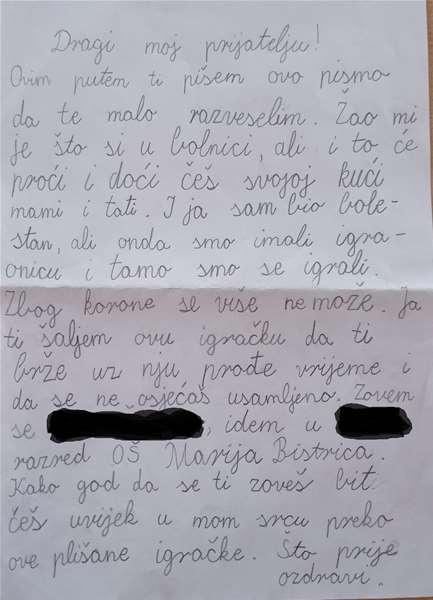 Dragi moj prijatelju!
Ovim putem ti pišem ovo pismo
da te malo razveselim. Žao mi
je što si u bolnici, ali i to će
proći i doći češ svojoj kući
mami i tati. I ja sam bio bole-
stan, ali onda smo imali igra-
onicu i tamo smo se igrali.
Zbog korone se više nemože. Ja
ti šaljem ovu igračku da ti
brže uz nju prođe vrijeme i
da se ne osjećaš usamljeno. Zovem
se , idem u
razred OŠ Marija Bistrica.
Kako god da se ti zoveš bit
češ uvijek u mom srcu preko
ove plišane igračke. Što prije
ozdravi.